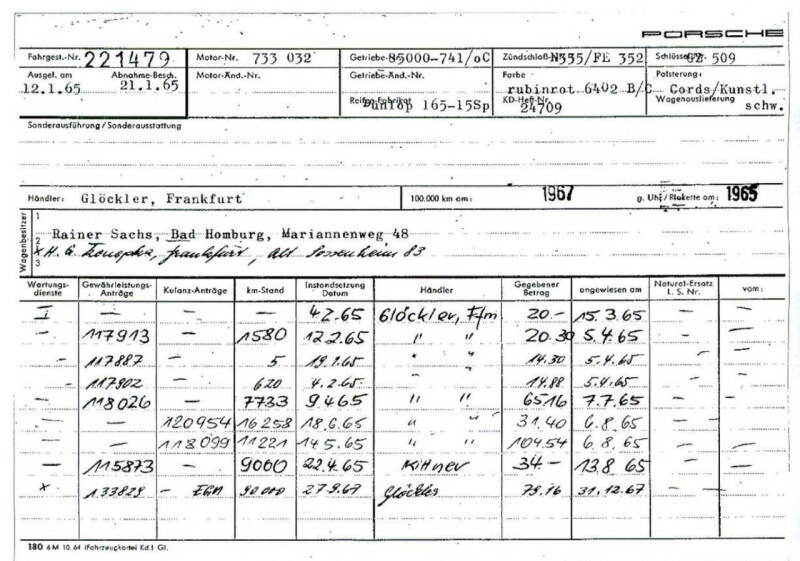 PORSCHE
Fahrgest.-Nr. 221479 Motor-Nr. 733 032 Getriebe-Nr. 85000-741/oC Zündschloß-Nr. N555/FE 352 Schlüssel-Nr. GZ 509
Ausgel. am 12.1.65 Abnahme-Besch. 21.1.65 Motor-Änd.-Nr. Getriebe-Änd.-Nr. Farbe rubinrot 6402 B/C Polsterung: Cords/Kunstl.
Reifen-Fabrikat Dunlop 165-15Sp KD-Heft-Nr. 24709 Wagenauslieferung schw.
Sonderausführung / Sonderausstattung
Händler: Glöckler, Frankfurt 100.000 km am: 1967 g. Uhr / Plakette am: 1965
Wagenbesitzer
1
Rainer Sachs, Bad Homburg, Mariannenweg 48
2
x H. G. Frankfurt, Alt Sossenheim 83
3
Wartungsdienste Gewährleistungs-Anträge Kulanz-Anträge km-Stand Instandsetzung Datum Händler Gegebener Betrag angewiesen am Natural-Ersatz l. S. Nr. vom:
I — — — 4.2.65 Glöckler, Ffm 20.- 15.3.65 — —
— 117913 — 1580 12.2.65 " " 20.30 5.4.65 — —
— 117887 — 5 19.1.65 " " 14.30 5.4.65 — —
— 117902 — 620 4.2.65 " " 14.88 5.4.65 — —
— 118026 — 7733 9.4.65 " " 65.16 7.7.65 — —
— — 120954 16258 18.6.65 " " 31.40 6.8.65 — —
— — 118099 11221 14.5.65 " " 104.54 6.8.65 — —
— 115873 — 9000 22.4.65 Kittner 34.- 13.8.65 — —
x 133829 - 90000 27.9.67 Glöckler 79.16 31.12.67 — —
180 6M 10. 64 (Fahrzeugkartei Kd.) Gl.